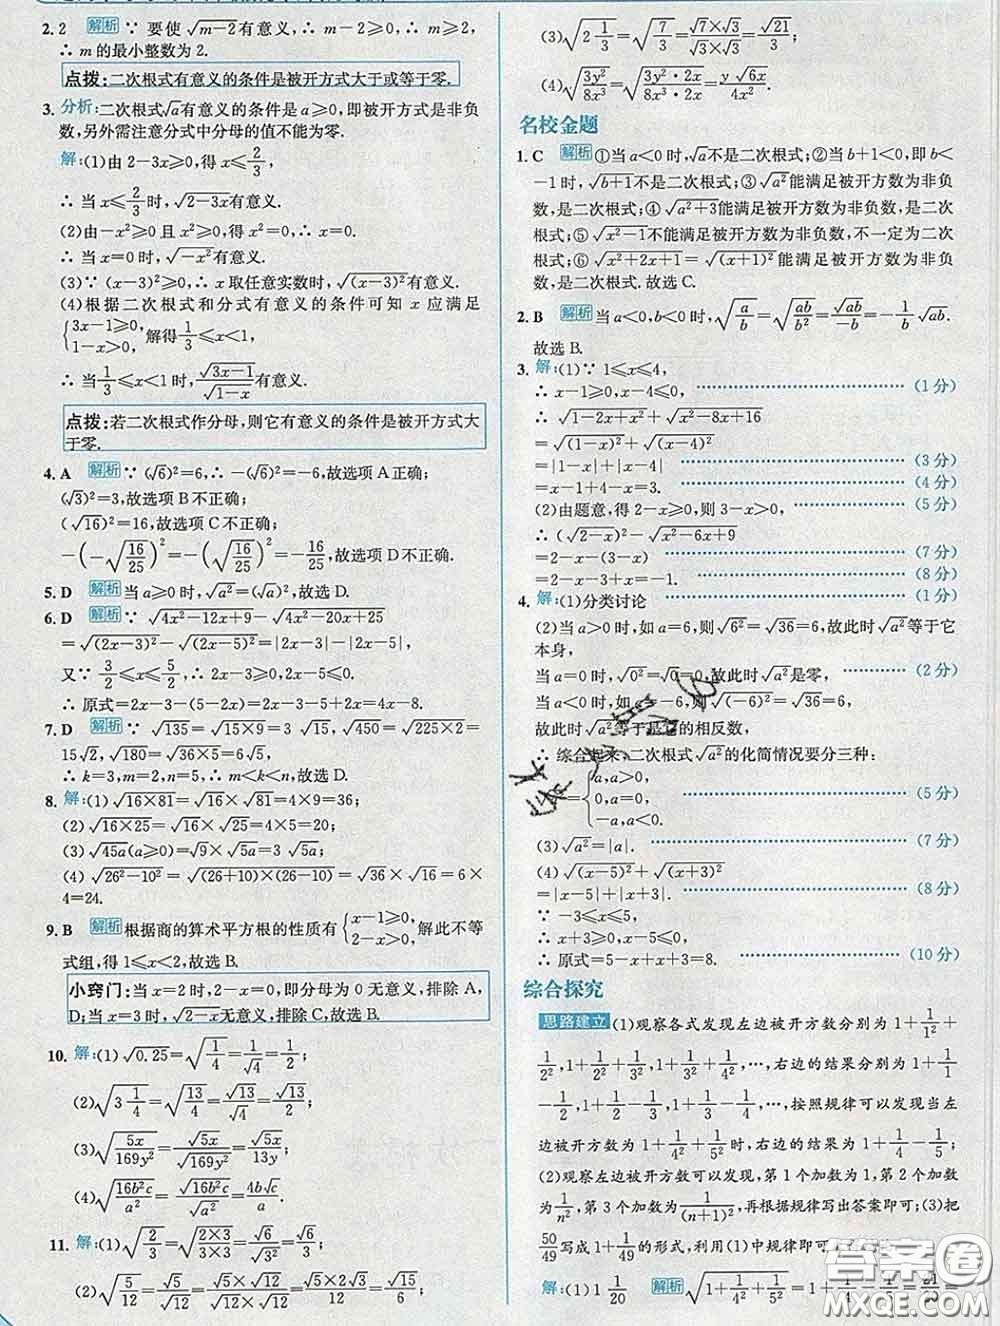 2. 2 解析 ∵ 要使√(m-2)有意义,∴ m-2≥0,∴ m≥2,
∴ m的最小整数为2.
点拨:二次根式有意义的条件是被开方式大于或等于零.
3. 分析:二次根式√a有意义的条件是a≥0,即被开方式是非负
数,另外需注意分式中分母的值不能为零.
解:(1)由2-3x≥0,得x≤2/3,
∴ 当x≤2/3时,√(2-3x)有意义.
(2)由-x²≥0且x²≥0,得x²=0,∴ x=0.
∴ 当x=0时,√(-x²)有意义.
(3)∵ (x-3)²≥0,∴ x取任意实数时,√((x-3)²)有意义.
(4)根据二次根式和分式有意义的条件可知x应满足
{3x-1≥0, 1-x>0, 解得1/3≤x<1.
∴ 当1/3≤x<1时,√(3x-1)/√(1-x)有意义.
点拨:若二次根式作分母,则它有意义的条件是被开方式大
于零.
4. A 解析 ∵ (√6)²=6,∴ -(√6)²=-6,故选项A正确;
(√3)²=3,故选项B不正确;
(√16)²=16,故选项C不正确;
-(-√(16/25))²=-(√(16/25))²=-16/25,故选项D不正确.
5. D 解析 当a≥0时,√(a²)=(√a)²,故选D.
6. D 解析 ∵ √(4x²-12x+9)-√(4x²-20x+25)
=√((2x-3)²)-√((2x-5)²)=|2x-3|-|2x-5|,
又∵ 3/2≤x≤5/2,∴ 2x-3≥0,2x-5≤0.
∴ 原式=2x-3+2x-5=4x-8,故选D.
7. D 解析 ∵ √135=√(15×9)=3 √15,√450=√(225×2)=
15√2,√180=√(36×5)=6√5,
∴ k=3,m=2,n=5,∴ m<k<n.故选D.
8. 解:(1)√(16×81)=√16×√81=4×9=36;
(2)√(16×25)=√16×√25=4×5=20;
(3)√(45a)(a≥0)=√9×√(5a)=3 √(5a);
(4) √(26²-10²)=√((26+10)×(26-10))=√36×√16=6×
4=24.
9. B 解析 根据商的算术平方根的性质有{x-1≥0, 2-x>0, 解此不等
式组,得1≤x<2.故选B.
小窍门:当x=2时,2-x=0,即分母为0无意义,排除A,
D;当x=3时,√(2-x)无意义,排除C,故选B.
10. 解:(1)√0.25=√(1/4)=√1/√4=1/2;
(2)√(3 1/4)=√(13/4)=√13/√4=√13/2;
(3)√(5x/169y²)=√(5x)/√(169y²)=√(5x)/13y;
(4)√(16b²c/a²)=√(16b²c)/√(a²)=4b√c/a.
11. 解:(1)√(2/3)=√((2×3)/(3×3))=√6/√(3²)=√6/3;
(2)√(5/12)=√5/√12=(√5×√12)/(√12×√12)=(2√15)/12=√15/6;
(3)√(2 1/3)=√(7/3)=(√7×√3)/(√3×√3)=√21/3;
(4)√(3y²/8x³)=√((3y²·2x)/(8x³·2x))=y√(6x)/4x².
名校金题
1. C 解析 ①当a<0时,√a不是二次根式;②当b+1<0,即b<
-1时,√(b+1)不是二次根式;③√(a²)能满足被开方数为非负
数,是二次根式;④√(a²+3)能满足被开方数为非负数,是二次
根式;⑤√(x²-1)不能满足被开方数为非负数,不一定为二次
根式;⑥√(x²+2x+1)=√((x+1)²)能满足被开方数为非负数,
是二次根式.故选C.
2. B 解析 当a<0,b<0时,√(a/b)=√(ab/b²)=√(ab)/(-b)=-(1/b)√(ab).
故选B.
3. 解:(1)∵ 1≤x≤4,
∴ x-1≥0,x-4≤0. (1分)
∴ √(1-2x+x²)+√(x²-8x+16)
=√((1-x)²)+√((x-4)²)
=|1-x|+|x-4| (3分)
=x-1+4-x=3. (4分)
(2)由题意,得2-x≥0,则3-x>0, (5分)
∴ (√(2-x))²-√(x²-6x+9)
=2-x-(3-x) (7分)
=2-x-3+x=-1. (8分)
4. 解:(1)分类讨论 (1分)
(2)当a>0时,如a=6,则√(6²)=√36=6,故此时√(a²)等于它
本身,
当a=0时,√(0²)=√0=0,故此时√(a²)是零, (2分)
当a<0时,如a=-6,则√((-6)²)=√36=6,
故此时√(a²)等于是它的相反数,
∴ 综合起来,二次根式√(a²)的化简情况要分三种:
{a,a>0,
0,a=0, (5分)
-a,a<0.
(3)√(a²)=|a|. (7分)
(4)√((x-5)²)+√((x+3)²)
=|x-5|+|x+3|. (8分)
∵ -3≤x≤5,
∴ x+3≥0,x-5≤0,
∴ 原式=5-x+x+3=8. (10分)
综合探究
思路建立 (1)观察各式发现左边被开方数分别为1+1/1²+
1/2²,1+1/2²+1/3²,1+1/3²+1/4²,…,右边的结果分别为1+1/1
-1/2,1+1/2-1/3,1+1/3-1/4,…,按照规律可以发现当左
边被开方数为1+1/4²+1/5²时,右边的结果为1+1/4-1/5;
(2)观察左边被开方数可以发现,第1个加数为1,第2个加数
为1/n²,第3个加数为1/(n+1)²,再根据规律写出答案即可;(3)把
50/49写成1+1/49的形式,利用(1)中规律即可
解:(1)1 1/20 解析 √(1+1/4²+1/5²)=1+1/4-1/5=21/20
答案圈
MXQE.COM